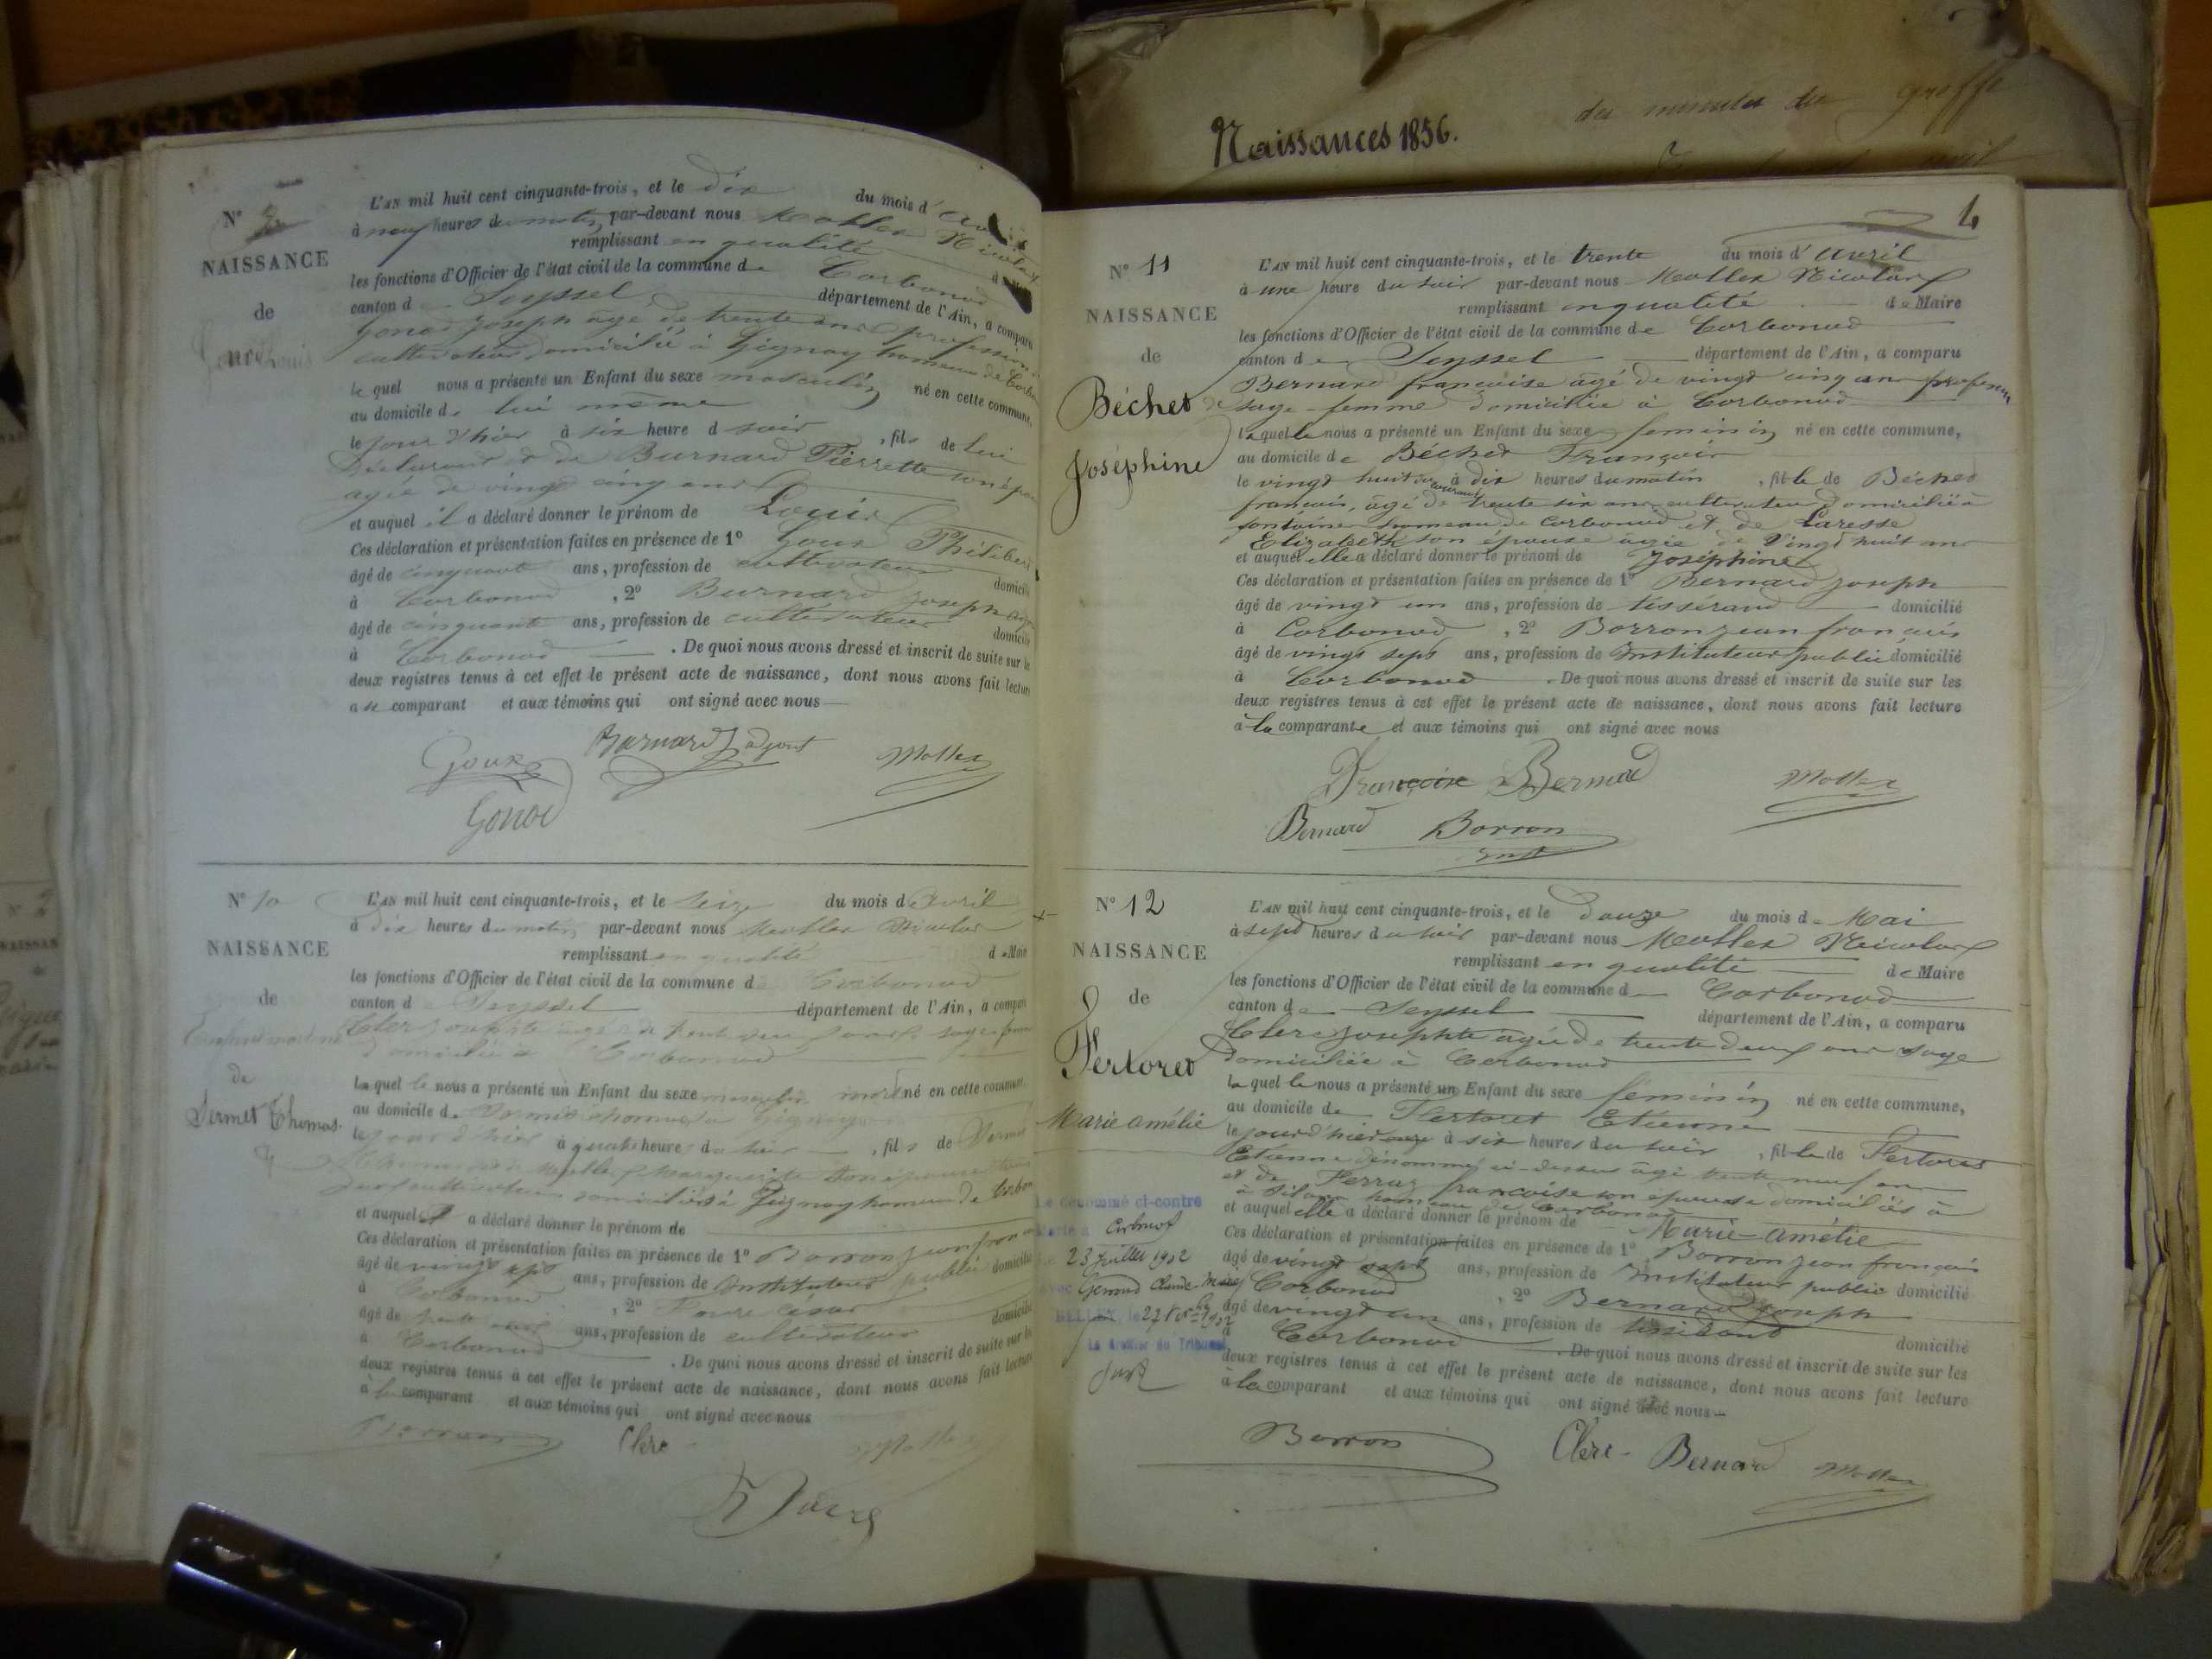 Naissances 1856.
des minutes du greffe
N° 9
NAISSANCE
de
Louis
L'AN mil huit cent cinquante-trois, et le dix du mois d'
à neuf heures du matin par-devant nous Mollex Nicolas
remplissant en qualité
les fonctions d'Officier de l'état civil de la commune de Corbonod
canton de Seyssel département de l'Ain, a comparu
Gonod Joseph agé de trente ans profession
cultivateur domicilié à Gignay hameau de
lequel nous a présenté un Enfant du sexe masculin né en cette commune,
au domicile de lui même
le jour d'hier à six heure d soir, fils de lui
déclarant et de Burnard Pierrette son
agée de vingt cinq ans
et auquel il a déclaré donner le prénom de Louis
Ces déclaration et présentation faites en présence de 1° Goux Philibert
âgé de cinquante ans, profession de cultivateur
à Corbonod, 2° Burnard Joseph
âgé de cinquante ans, profession de cultivateur
à Corbonod. De quoi nous avons dressé et inscrit de suite sur
deux registres tenus à cet effet le présent acte de naissance, dont nous avons fait lecture
au comparant et aux témoins qui ont signé avec nous
Goux Burnard adjoint Mollex
Gonod
N° 10
NAISSANCE
de
Enfant mort né
de
Sermet Thomas
L'AN mil huit cent cinquante-trois, et le seize du mois d'Avril
à dix heures du matin par-devant nous Mollex Nicolas
remplissant en qualité de Maire
les fonctions d'Officier de l'état civil de la commune de Corbonod
canton de Seyssel département de l'Ain, a comparu
Clerc Josephte agée de trente deux ans sage femme
domiciliée à Corbonod
laquelle nous a présenté un Enfant du sexe masculin mort né en cette commune,
au domicile de Sermet Thomas à Gignay
le jour d'hier à quatre heures du soir, fils de Sermet
Thomas Marguerite son épouse
cultivateurs domiciliés à Gignay hameau de
et auquel a déclaré donner le prénom de
Ces déclaration et présentation faites en présence de 1° Borron Jean françois
âgé de vingt sept ans, profession de Instituteur public
à Corbonod, 2° César
âgé de trente ans, profession de cultivateur
à Corbonod. De quoi nous avons dressé et inscrit de suite sur
deux registres tenus à cet effet le présent acte de naissance, dont nous avons fait lecture
à la comparant et aux témoins qui ont signé avec nous
Borron Clerc Mollex
6
N° 11
NAISSANCE
de
Béchet
Joséphine
L'AN mil huit cent cinquante-trois, et le trente du mois d'avril
à une heure du soir par-devant nous Mollex Nicolas
remplissant en qualité de Maire
les fonctions d'Officier de l'état civil de la commune de Corbonod
canton de Seyssel département de l'Ain, a comparu
Bernard françoise âgé de vingt cinq ans profession
de sage-femme domiciliée à Corbonod
laquelle nous a présenté un Enfant du sexe feminin né en cette commune,
au domicile de Béchet François
le vingt huit du courant à dix heures du matin, fille de Béchet
françois, âgé de trente six ans cultivateur domicilié à
fontaine hameau de Corbonod et de Laresse
Elizabeth son épouse agée de vingt huit ans
et auquel elle a déclaré donner le prénom de Joséphine
Ces déclaration et présentation faites en présence de 1° Bernard Joseph
âgé de vingt un ans, profession de tisserand domicilié
à Corbonod, 2° Borron jean françois
âgé de vingt sept ans, profession de Instituteur public domicilié
à Corbonod. De quoi nous avons dressé et inscrit de suite sur les
deux registres tenus à cet effet le présent acte de naissance, dont nous avons fait lecture
à la comparante et aux témoins qui ont signé avec nous
Françoise Bernard Mollex
Bernard Borron
inst
N° 12
NAISSANCE
de
Fertoret
Marie amélie
Le dénommé ci-contre
Corbonod
23 Juillet 1902
BELLEY, le 27
Le Greffier du Tribunal
L'AN mil huit cent cinquante-trois, et le douze du mois de Mai
à sept heures du soir par-devant nous Mollex Nicolas
remplissant en qualité de Maire
les fonctions d'Officier de l'état civil de la commune de Corbonod
canton de Seyssel département de l'Ain, a comparu
Clerc Josephte agée de trente deux ans sage
domiciliée à Corbonod
laquelle nous a présenté un Enfant du sexe féminin né en cette commune,
au domicile de Fertoret Etienne
le jour d'hier onze à six heures du soir, fille de Fertoret
Etienne dénommé ci-dessus âgé trente neuf ans
et de Ferraz françoise son épouse domiciliés à
à hameau de Corbonod
et auquel elle a déclaré donner le prénom de Marie-amélie
Ces déclaration et présentation faites en présence de 1° Borron Jean françois
âgé de vingt sept ans, profession de Instituteur public domicilié
Corbonod, 2° Bernard Joseph
âgé de vingt un ans, profession de tisserand domicilié
à Corbonod. De quoi nous avons dressé et inscrit de suite sur les
deux registres tenus à cet effet le présent acte de naissance, dont nous avons fait lecture
à la comparant et aux témoins qui ont signé avec nous
Borron Clerc Bernard Mollex